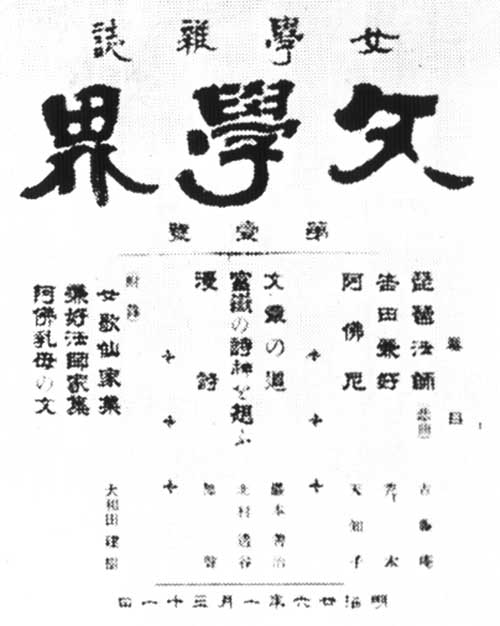 女學雜誌
文學界
第壹號
目
琵琶法師 悲曲 古藤庵
吉田兼好 禿木
阿佛尼 天知子
文章の道 巖本善治
富嶽の詩神を想ふ 北村透谷
漫詩 無聲
附錄
女歌仙家集
兼好法師家集
阿佛乳母の文
大和田建樹
明治廿六年一月三十一日